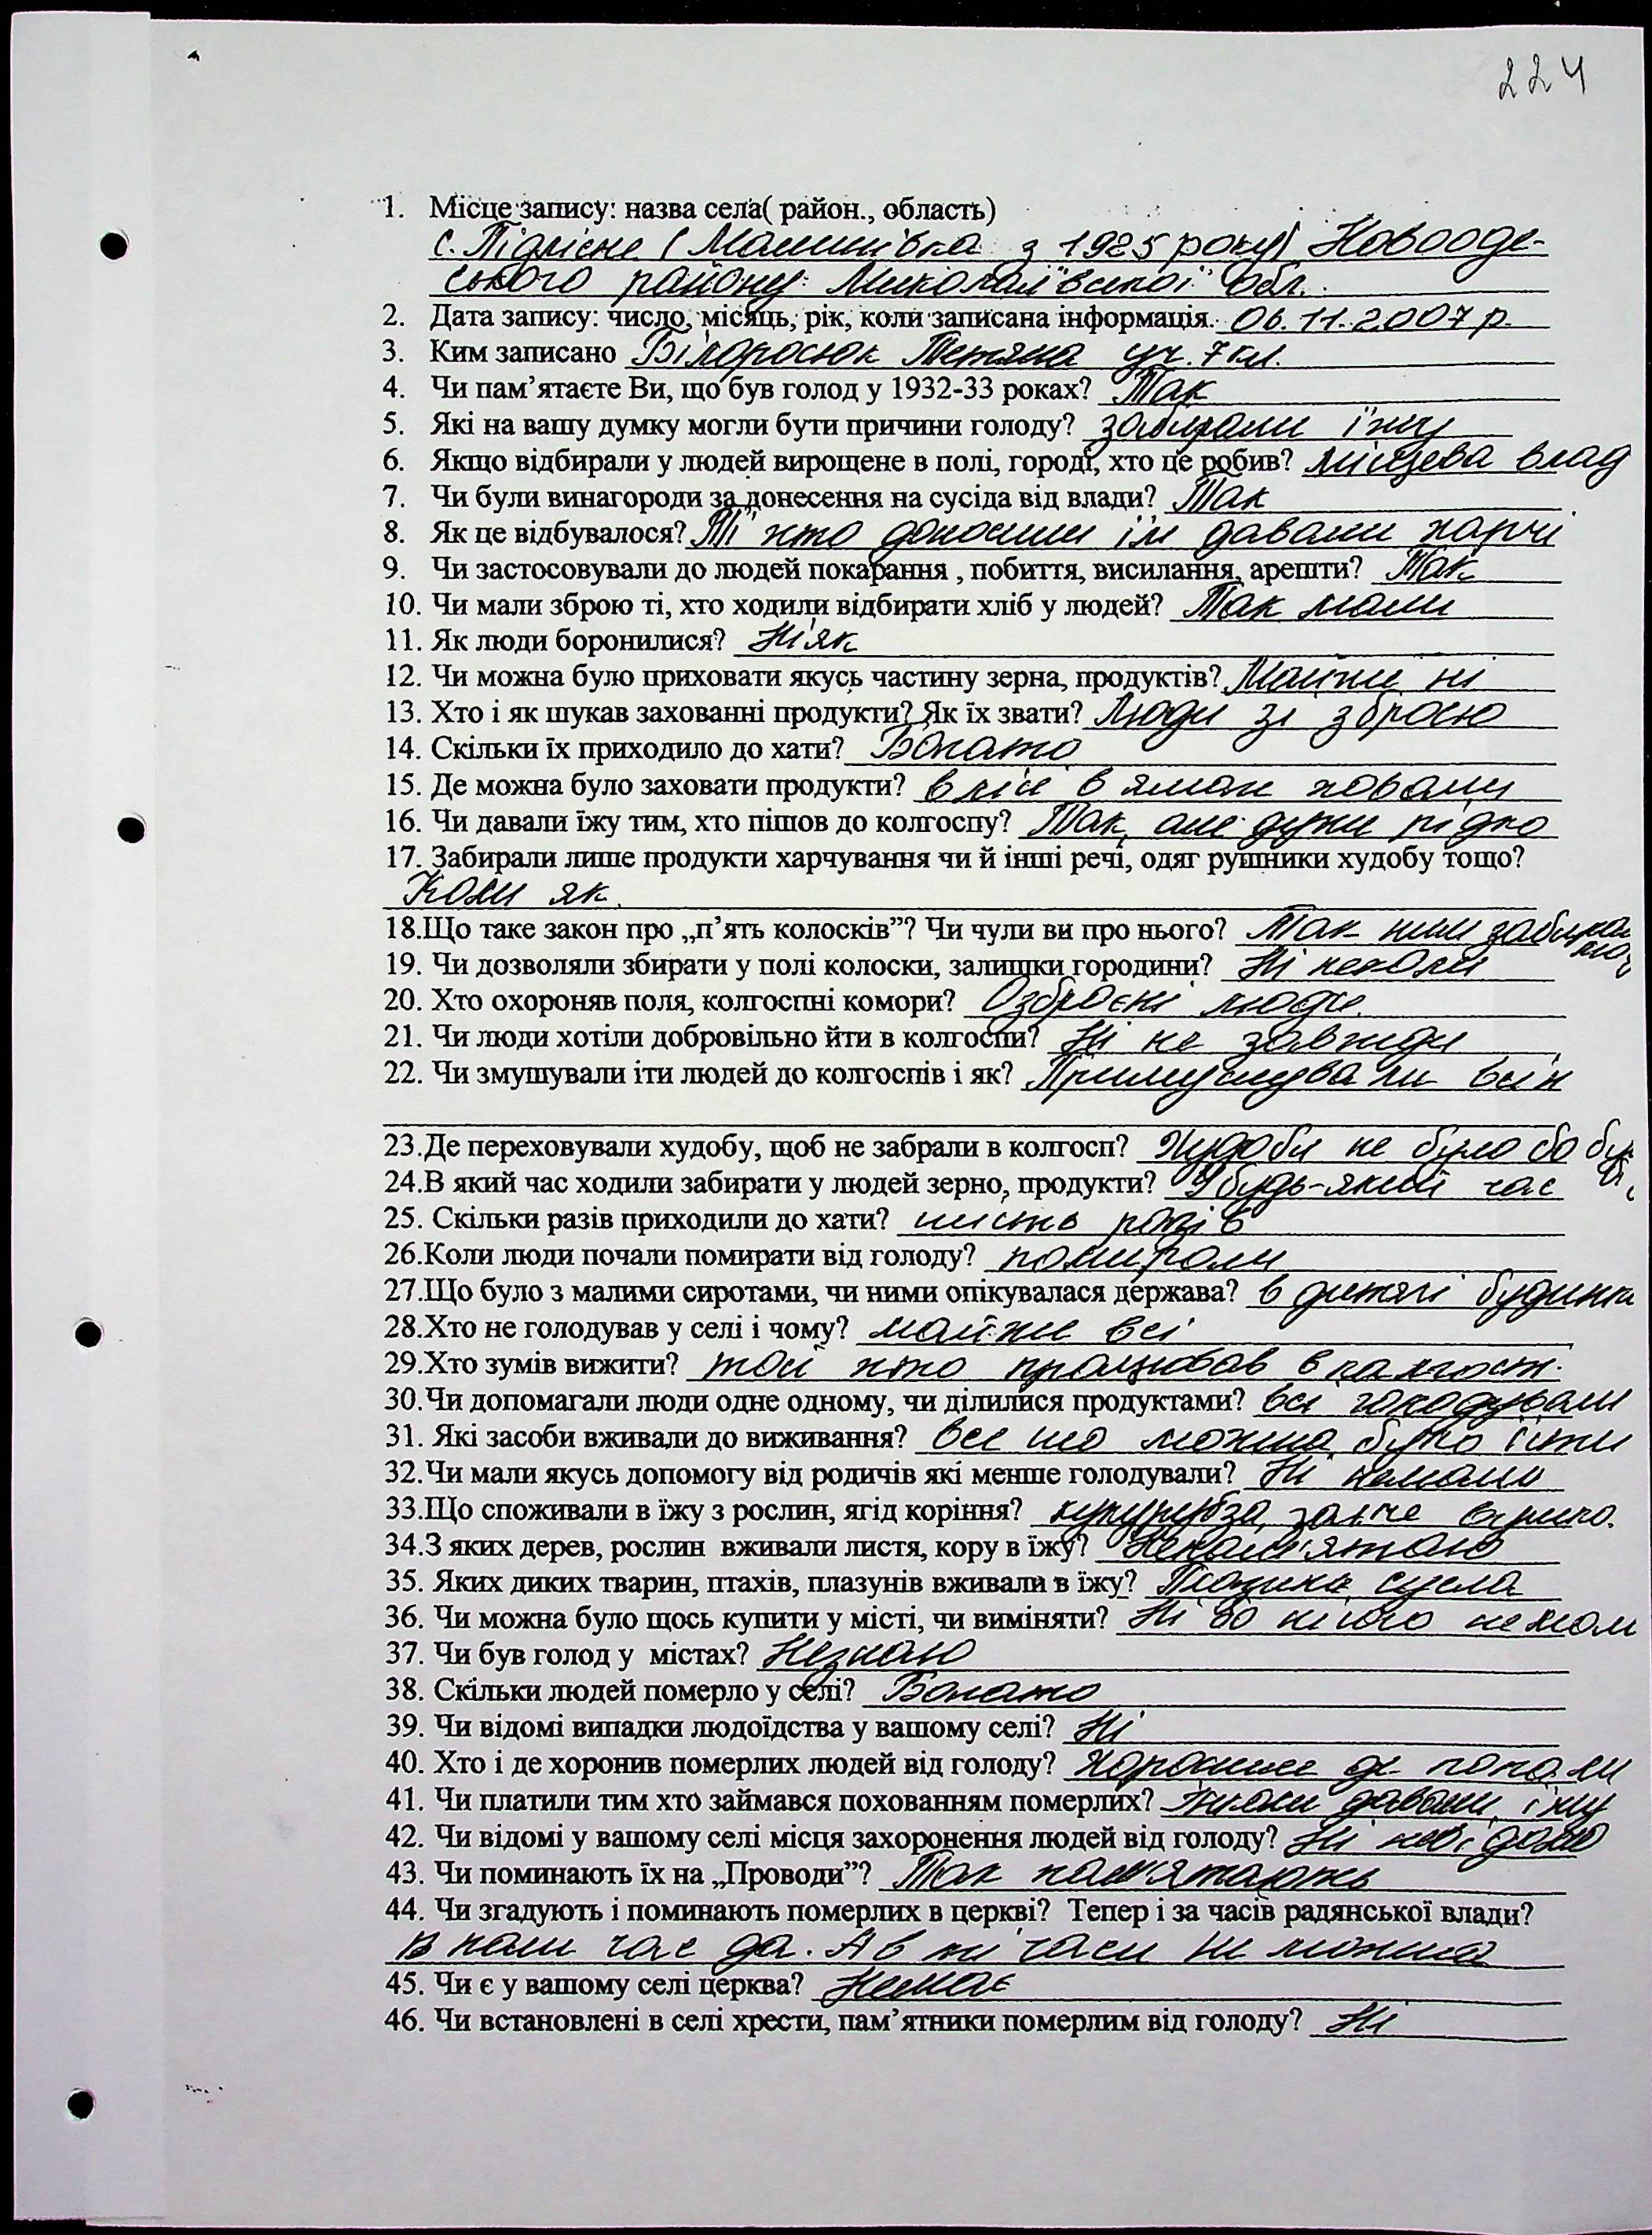 224
1. Місце запису: назва села( район., область)
с. Підлісне ( Малиновка з 1925 року) Новооде-
ського району Миколаївської обл.
2. Дата запису: число, місяць, рік, коли записана інформація. 06.11.2007 р.
3. Ким записано Тетяна уч. 7 кл.
4. Чи пам’ятаєте Ви, що був голод у 1932-33 роках? Так
5. Які на вашу думку могли бути причини голоду? забирали їжу
6. Якщо відбирали у людей вирощене в полі, городі, хто це робив? місцева влад
7. Чи були винагороди за донесення на сусіда від влади? Так
8. Як це відбувалося? Ті хто доносили їм давали харчі
9. Чи застосовували до людей покарання , побиття, висилання, арешти? Так
10. Чи мали зброю ті, хто ходили відбирати хліб у людей? Так мали
11. Як люди боронилися? Ніяк
12. Чи можна було приховати якусь частину зерна, продуктів? Майже ні
13. Хто і як шукав заховані продукти? Як їх звати? Люди зі зброєю
14. Скільки їх приходило до хати? Багато
15. Де можна було заховати продукти? в лісі в ямах ховали
16. Чи давали їжу тим, хто пішов до колгоспу? Так, але дуже рідко
17. Забирали лише продукти харчування чи й інші речі, одяг рушники худобу тощо?
Коли як.
18.Що таке закон про „п’ять колосків”? Чи чули ви про нього? Так
19. Чи дозволяли збирати у полі колоски, залишки городини? Ні ніколи
20. Хто охороняв поля, колгоспні комори? Озброєні люди.
21. Чи люди хотіли добровільно йти в колгоспи? Ні не завжди
22. Чи змушували іти людей до колгоспів і як? Примушували всіх
23.Де переховували худобу, щоб не забрали в колгосп? Худоби не було бо
24.В який час ходили забирати у людей зерно, продукти? У будь-який час
25. Скільки разів приходили до хати? шисть разів
26.Коли люди почали помирати від голоду? помирали
27.Що було з малими сиротами, чи ними опікувалася держава? в дитячі будинки
28.Хто не голодував у селі і чому? майже всі
29.Хто зумів вижити? той хто працював в колгосп.
30.Чи допомагали люди одне одному, чи ділилися продуктами? всі голодували
31. Які засоби вживали до виживання? все що можна було їсти
32.Чи мали якусь допомогу від родичів які менше голодували? Ні немали
33.Що споживали в їжу з рослин, ягід коріння? кукурудза,
34.З яких дерев, рослин вживали листя, кору в їжу? Непам'ятаю
35. Яких диких тварин, птахів, плазунів вживали в їжу?
36. Чи можна було щось купити у місті, чи виміняти? Ні бо нічого немали
37. Чи був голод у містах? Незнаю
38. Скільки людей померло у селі? Багато
39. Чи відомі випадки людоїдства у вашому селі? Ні
40. Хто і де хоронив померлих людей від голоду? Хоронили де попали
41. Чи платили тим хто займався похованням померлих? тільки давали їжу
42. Чи відомі у вашому селі місця захоронення людей від голоду? Ні невідомо
43. Чи поминають їх на „Проводи”? Так пам'ятають
44. Чи згадують і поминають померлих в церкві? Тепер і за часів радянської влади?
В наш час да. А в ті часи не можна
45. Чи є у вашому селі церква? Немає
46. Чи встановлені в селі хрести, пам’ятники померлим від голоду? Ні